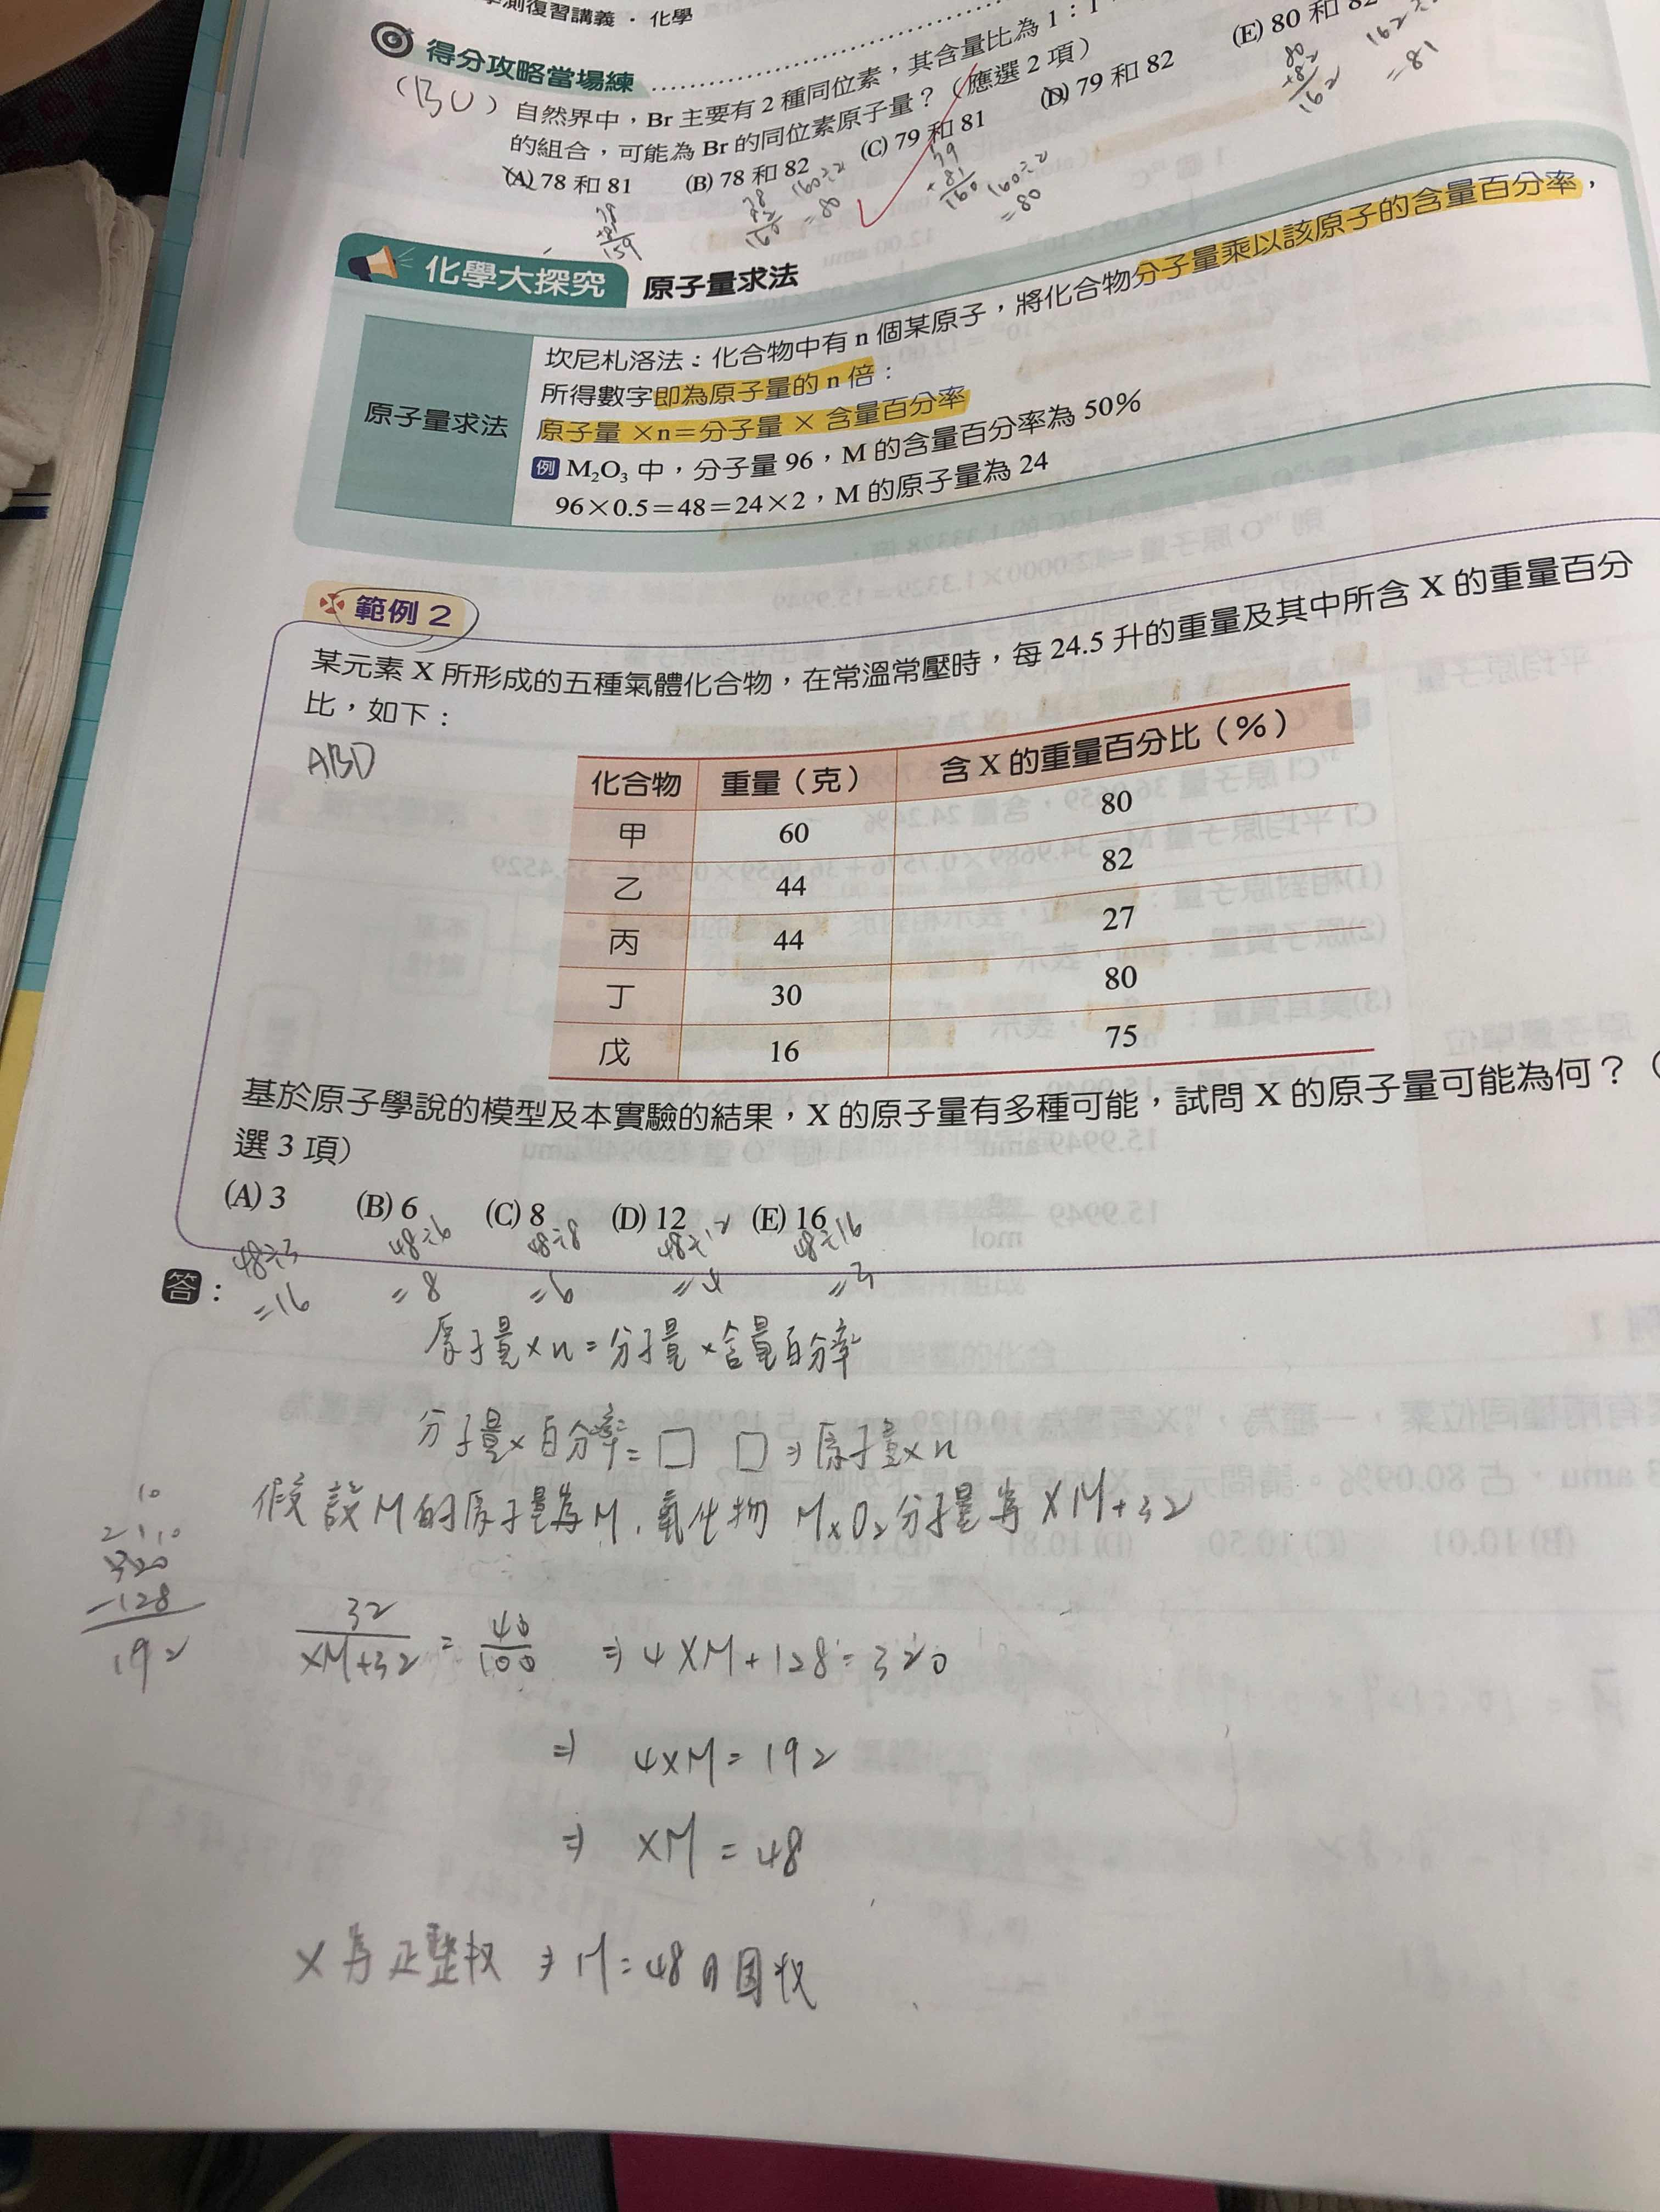 學測復習講義・化學
得分攻略當場練
(BC)自然界中，Br 主要有 2 種同位素，其含量比為 1：1
的組合，可能為 Br 的同位素原子量？（應選 2 項）
(A) 78 和 81 (B) 78 和 82 (C) 79 和 81 (D) 79 和 82 (E) 80 和 82
159
160
160÷2
=80
79
+81
160
160÷2
=80
80
+82
162
=81
化學大探究 原子量求法
原子量求法
坎尼札洛法：化合物中有 n 個某原子，將化合物分子量乘以該原子的含量百分率，
所得數字即為原子量的 n 倍：
原子量 ×n＝分子量 × 含量百分率
例 M₂O₃ 中，分子量 96，M 的含量百分率為 50%
96×0.5＝48＝24×2，M 的原子量為 24
範例 2
某元素 X 所形成的五種氣體化合物，在常溫常壓時，每 24.5 升的重量及其中所含 X 的重量百分
比，如下：
ABD
化合物 重量（克） 含 X 的重量百分比（%）
甲 60 80
乙 44 82
丙 44 27
丁 30 80
戊 16 75
基於原子學說的模型及本實驗的結果，X 的原子量有多種可能，試問 X 的原子量可能為何？（
選 3 項）
(A) 3 (B) 6 (C) 8 (D) 12 (E) 16
48÷3 48÷6 48÷8 48÷12 48÷16
=16 =8 =6 =4 =3
答：
原子量×n=分子量×含量百分率
分子量×百分率=□ □⇒原子量×n
假設M的原子量為M，氧化物 MxO₂分子量為 XM+32
320
-128
192
32/XM+32 = 40/100 ⇒ 4XM+128=320
⇒ 4XM=192
⇒ XM=48
X為正整數 ⇒ M=48的因數